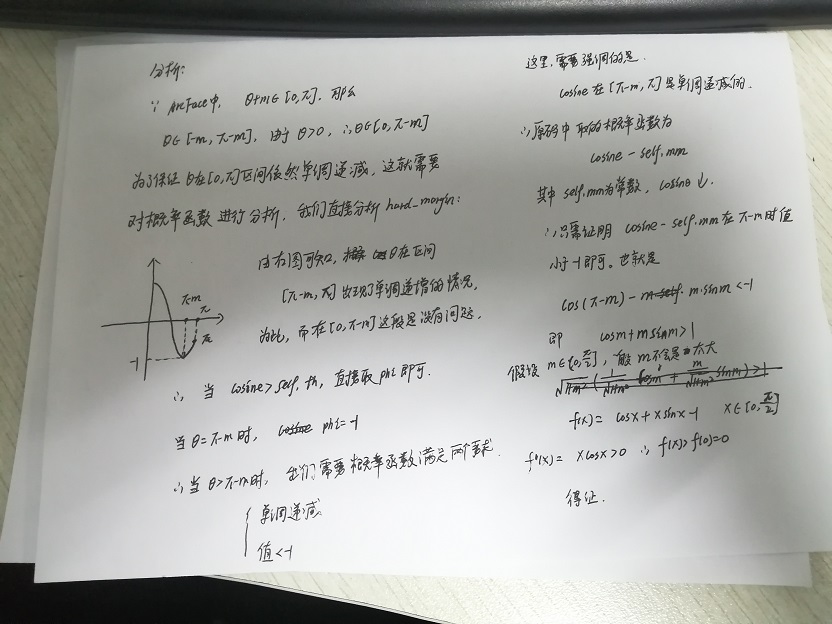 分析:
∵ ArcFace中, θ+m∈[0,π]. 那么
θ∈[-m, π-m], 由于 θ>0, ∴θ∈[0, π-m]
为了保证 θ在[0,π]区间依然单调递减, 这就需要
对概率函数 进行分析. 我们直接分析 hard_margin:
由右图可知,
θ在区间
[π-m, π] 出现了单调递增的情况,
为此, 而在[0,π-m]这段是没有问题,
π-m
π
-1
∴ 当 cosine > self.th, 直接取 phi 即可.
当 θ=π-m时, phi=-1
∴当 θ>π-m时, 我们需要概率函数满足两个要求.
单调递减
值<-1
这里, 需要强调的是.
cosine 在 [π-m, π] 是单调递减的.
∴原码中 取的概率函数为
cosine - self.mm
其中 self.mm为常数, cosθ ↓.
∴只需证明 cosine - self.mm 在 π-m时值
小于-1即可。也就是
cos(π-m) - m·sinm < -1
即 cosm + msinm > 1
假设 m∈[0,π/2], 一般 m不会是太大
f(x) = cosx + xsinx - 1 x∈[0, π/2]
f'(x) = xcosx > 0 ∴ f(x) > f(0) = 0
得证.